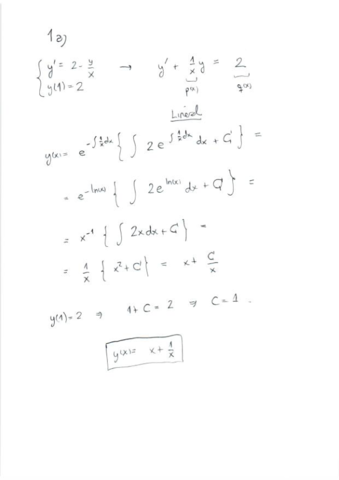 1a)
{ y' = 2 - y/x → y' + 1/x y = 2
y(1) = 2 p(x) q(x)
Lineal
y(x) = e^{-∫ 1/x dx} { ∫ 2 e^{∫ 1/x dx} dx + C } =
= e^{-ln(x)} { ∫ 2 e^{ln(x)} dx + C } =
= x^{-1} { ∫ 2x dx + C } =
= 1/x { x² + C } = x + C/x
y(1) = 2 ⇒ 1 + C = 2 ⇒ C = 1.
y(x) = x + 1/x